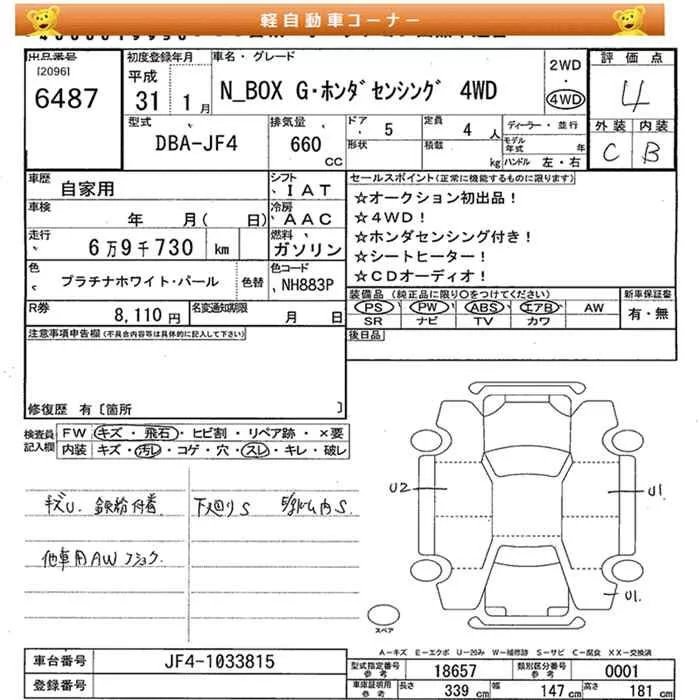 軽自動車コーナー
出品番号
[2096]
6487
初度登録年月
平成
31 1月
車名・グレード
N_BOX G・ホンダセンシング 4WD
2WD
・
4WD
評価点
4
外装 内装
C B
型式
DBA-JF4
排気量
660
CC
ドア 5
形状
定員 4 人
積載 kg
ディーラー・並行
モデル年式 年
ハンドル 左・右
車歴
自家用
シフト
IAT
車検
年 月( 日)
冷房
AAC
走行
6万9千730 km
燃料
ガソリン
色
プラチナホワイト・パール
色替
色コード
NH883P
R券
8,110円
名変通知期限
月 日
セールスポイント(正常に機能するものに限ります)
☆オークション初出品!
☆4WD!
☆ホンダセンシング付き!
☆シートヒーター!
☆CDオーディオ!
装備品(純正品に限り○をつけてください)
PS PW ABS エアB AW
SR ナビ TV カワ
新車保証書
有・無
後日品
注意事項申告欄(不具合内容等は具体的に記入して下さい)
修復歴 有〔箇所 〕
検査員記入欄
FW キズ・飛石・ヒビ割・リペア跡・×要
内装 キズ・汚レ・コゲ・穴・スレ・キレ・破レ
キズU.
下廻りS
内S.
他車用AW
U2
U1
U1.
スペア
A-キズ E-エクボ U-凹み W-補修跡 S-サビ C-腐食 XX-交換済
車台番号
JF4-1033815
登録番号
型式指定番号
参考
18657
類別区分番号
参考
0001
車庫証明用
参考
長さ 339 cm
幅 147 cm
高さ 181 cm